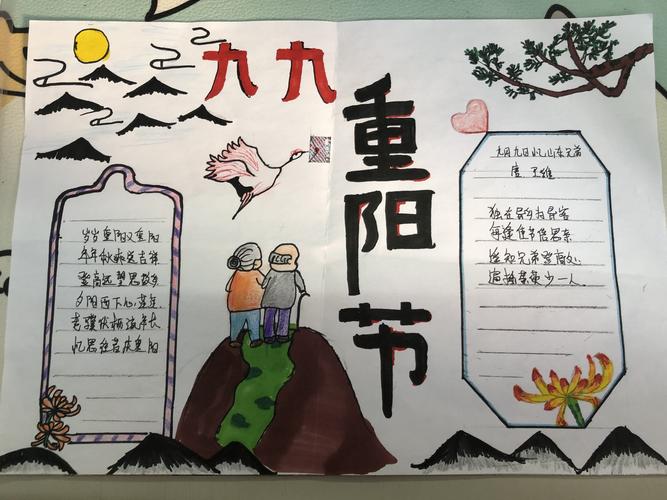 九九
重阳节
岁岁重阳又重阳
年年秋送吉祥
登高远望思故乡
夕阳西下心
老骥伏枥流年长
忆思往昔庆重阳
九月九日忆山东兄弟
唐 王维
独在异乡为异客
每逢佳节倍思亲
遥知兄弟登高处
遍插茱萸少一人。